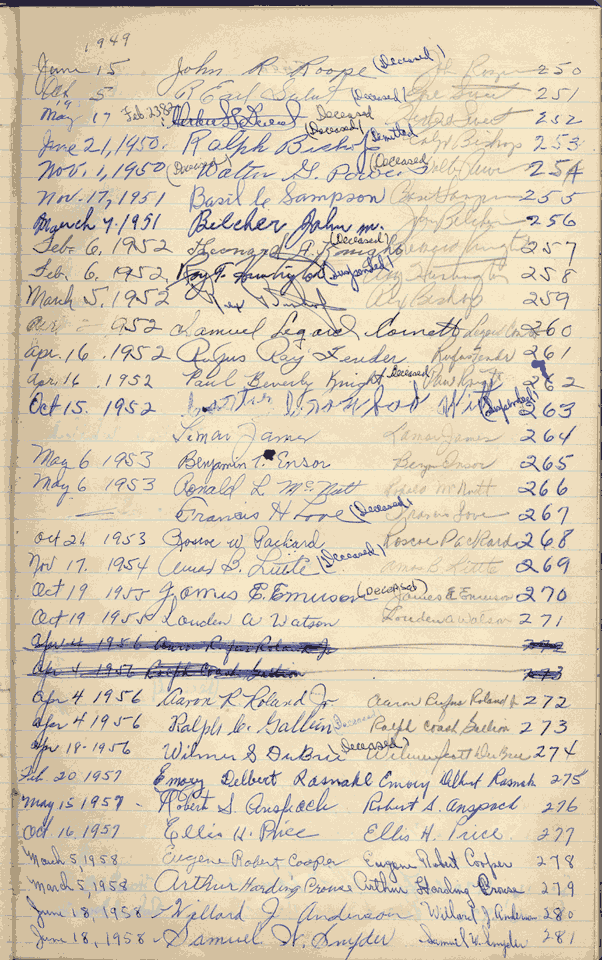 1949
June 15 John R Roope (Deceased) 250
Oct 5 R Earl (Deceased) 251
May 17 Feb 2382 Deceased 252
June 21, 1950. Ralph Bishop (Deceased) Limited Bishop 253
Nov. 1, 1950 (Deceased) Walter G. (Deceased) 254
Nov. 17, 1951 Basil C Sampson 255
March 7. 1951 Belcher John M. Jno Belcher 256
Feb. 6, 1952 Leonard A. Knight (Deceased) 257
Feb. 6, 1952, Roy T. Huntington (Suspended) Roy Huntington 258
March 5, 1952 Rex Bishop Rex Bishop 259
952 Samuel Legard Cornett 260
Apr. 16 . 1952 Rufus Ray Fender Rufus Fender 261
Apr. 16 1952 Paul Beverly Knight Deceased Paul Knight 262
Oct 15. 1952 (Suspended) 263
Limar James Lamar James 264
May 6 1953 Benjamin T. Ensor Benj. Ensor 265
May 6 1953 Ronald L McNutt McNutt 266
Francis H Love (Deceased) Francis Love 267
Oct 21 1953 Roscoe W Packard Roscoe Packard 268
Nov 17. 1954 Amos B. Little (Deceased) Amos B Little 269
Oct 19 1955 James E. Emerson (Deceased) James E Emerson 270
Oct 19 1955 Louden A Watson Louden A Watson 271
Apr 4 1956 Aaron Rufus Roland Jr 272
Apr 4 1956 Ralph Coash Gallion 273
Apr 4 1956 Aaron R Roland Jr Aaron Rufus Roland Jr 272
Apr 4 1956 Ralph C. Gallion Deceased Ralph Coash Gallion 273
Apr 18-1956 Wilmer S DuBrie (Deceased) Wilmer Scott DuBrie 274
Feb. 20 1957 Emory Delbert Rasnake Emory Delbert Rasnake 275
May 15 1957 - Robert S. Anspach Robert S. Anspach 276
Oct. 16. 1957 Ellis H. Price Ellis H. Price 277
March 5, 1958 Eugene Robert Cooper Eugene Robert Cooper 278
March 5, 1958 Arthur Harding Crouse Arthur Harding Crouse 279
June 18, 1958 - Willard J Anderson Willard J. Anderson 280
June 18, 1958 - Samuel W. Snyder Samuel W. Snyder 281